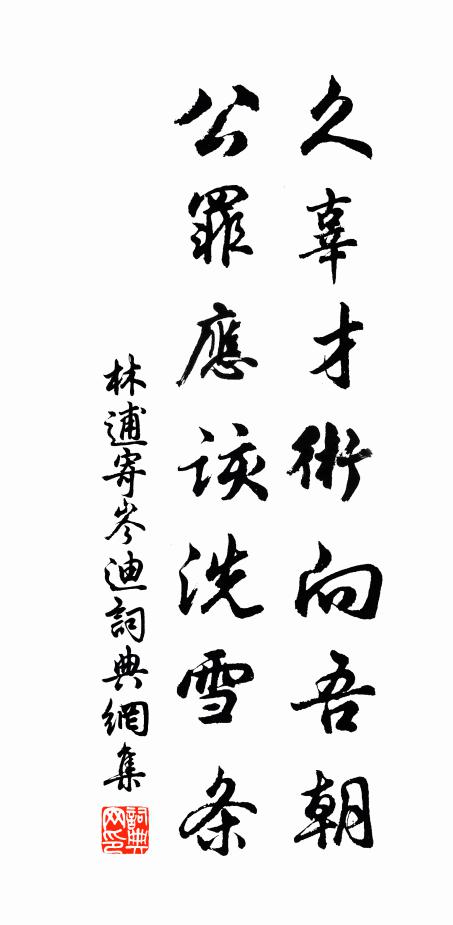 久辜才術向吾朝
公罪應該洗雪条
林逋寄岑迪詞典網集
詞典網印